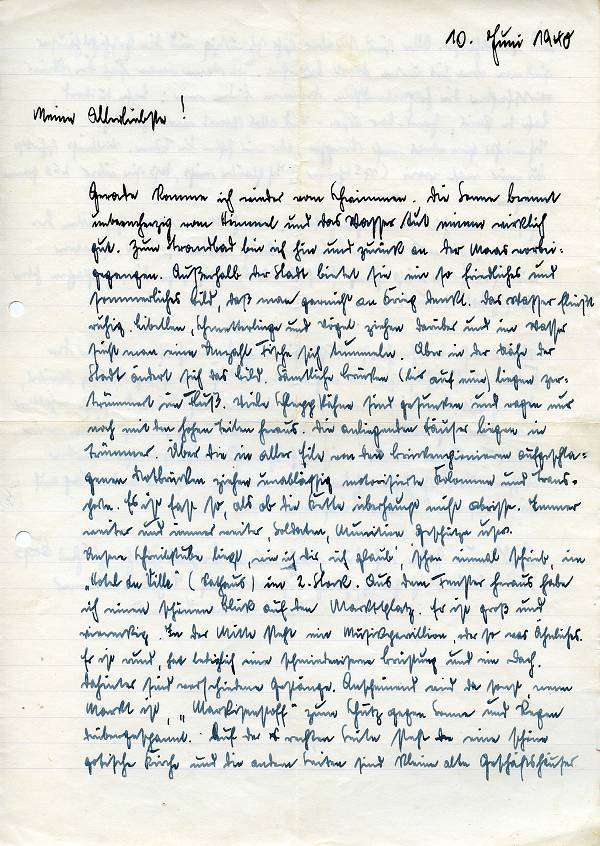 10. Juni 1940
Meine Allerliebste!
Gerade komme ich wieder vom Schwimmen. Die Sonne brennt
unbarmherzig vom Himmel und das Wasser tut einem wirklich
gut. Zum Strandbad bin ich hin und zurück an der Maas vorbei-
gegangen. Außerhalb der Stadt bietet sie ein so friedliches und
sommerliches Bild, daß man garnicht an Krieg denkt. Das Wasser fließt
ruhig. Libellen, Schmetterlinge und Vögel ziehen darüber und im Wasser
sieht man eine Unzahl Fische sich tummeln. Aber in der Nähe der
Stadt ändert sich das Bild. Sämtliche Brücken (bis auf eine) liegen zer-
trümmert im Fluß. Viele Schleppkähne sind gesunken und ragen nur
noch mit den hohen Seiten heraus. Die anliegenden Häuser liegen in
Trümmer. Über die in aller Eile von den Brückenpionieren aufgeschla-
genen Notbrücken ziehen unablässig motorisierte Kolonnen und Trans-
porte. Es ist fast so, als ob die Kette überhaupt nicht abrisse. Immer
weiter und immer weiter Soldaten, Munition Geschütze usw.
Unsere Schreibstube liegt, wie ich dir, ich glaub', schon einmal schrieb, im
„Hotel de Ville" (Rathaus) im 2. Stock. Aus dem Fenster heraus habe
ich einen schönen Blick auf den Marktplatz. Er ist groß und
viereckig. In der Mitte steht ein Musikpavillion, oder so was Ähnliches.
Er ist rund, hat lediglich eine schmiedeeiserne Brüstung und ein Dach.
Dahinter sind verschiedene Gestänge. Anscheinend wird da sonst, wenn
Markt ist, „Markisenstoff" zum Schutz gegen Sonne und Regen
drübergespannt. Auf der rechten Seite steht eine schöne
gotische Kirche und die andern Seiten sind kleine alte Geschäftshäuser